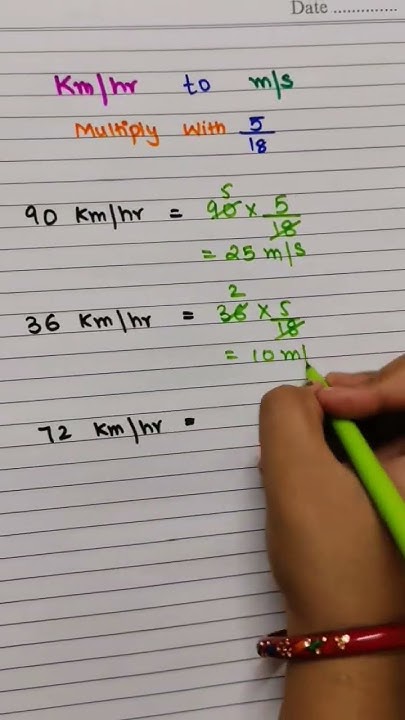 Date ..............
Km/hr to m/s
Multiply with 5/18
90 Km/hr = 5 90 × 5/18
= 25 m/s
36 Km/hr = 2 36 × 5/18
= 10 m/
72 Km/hr =